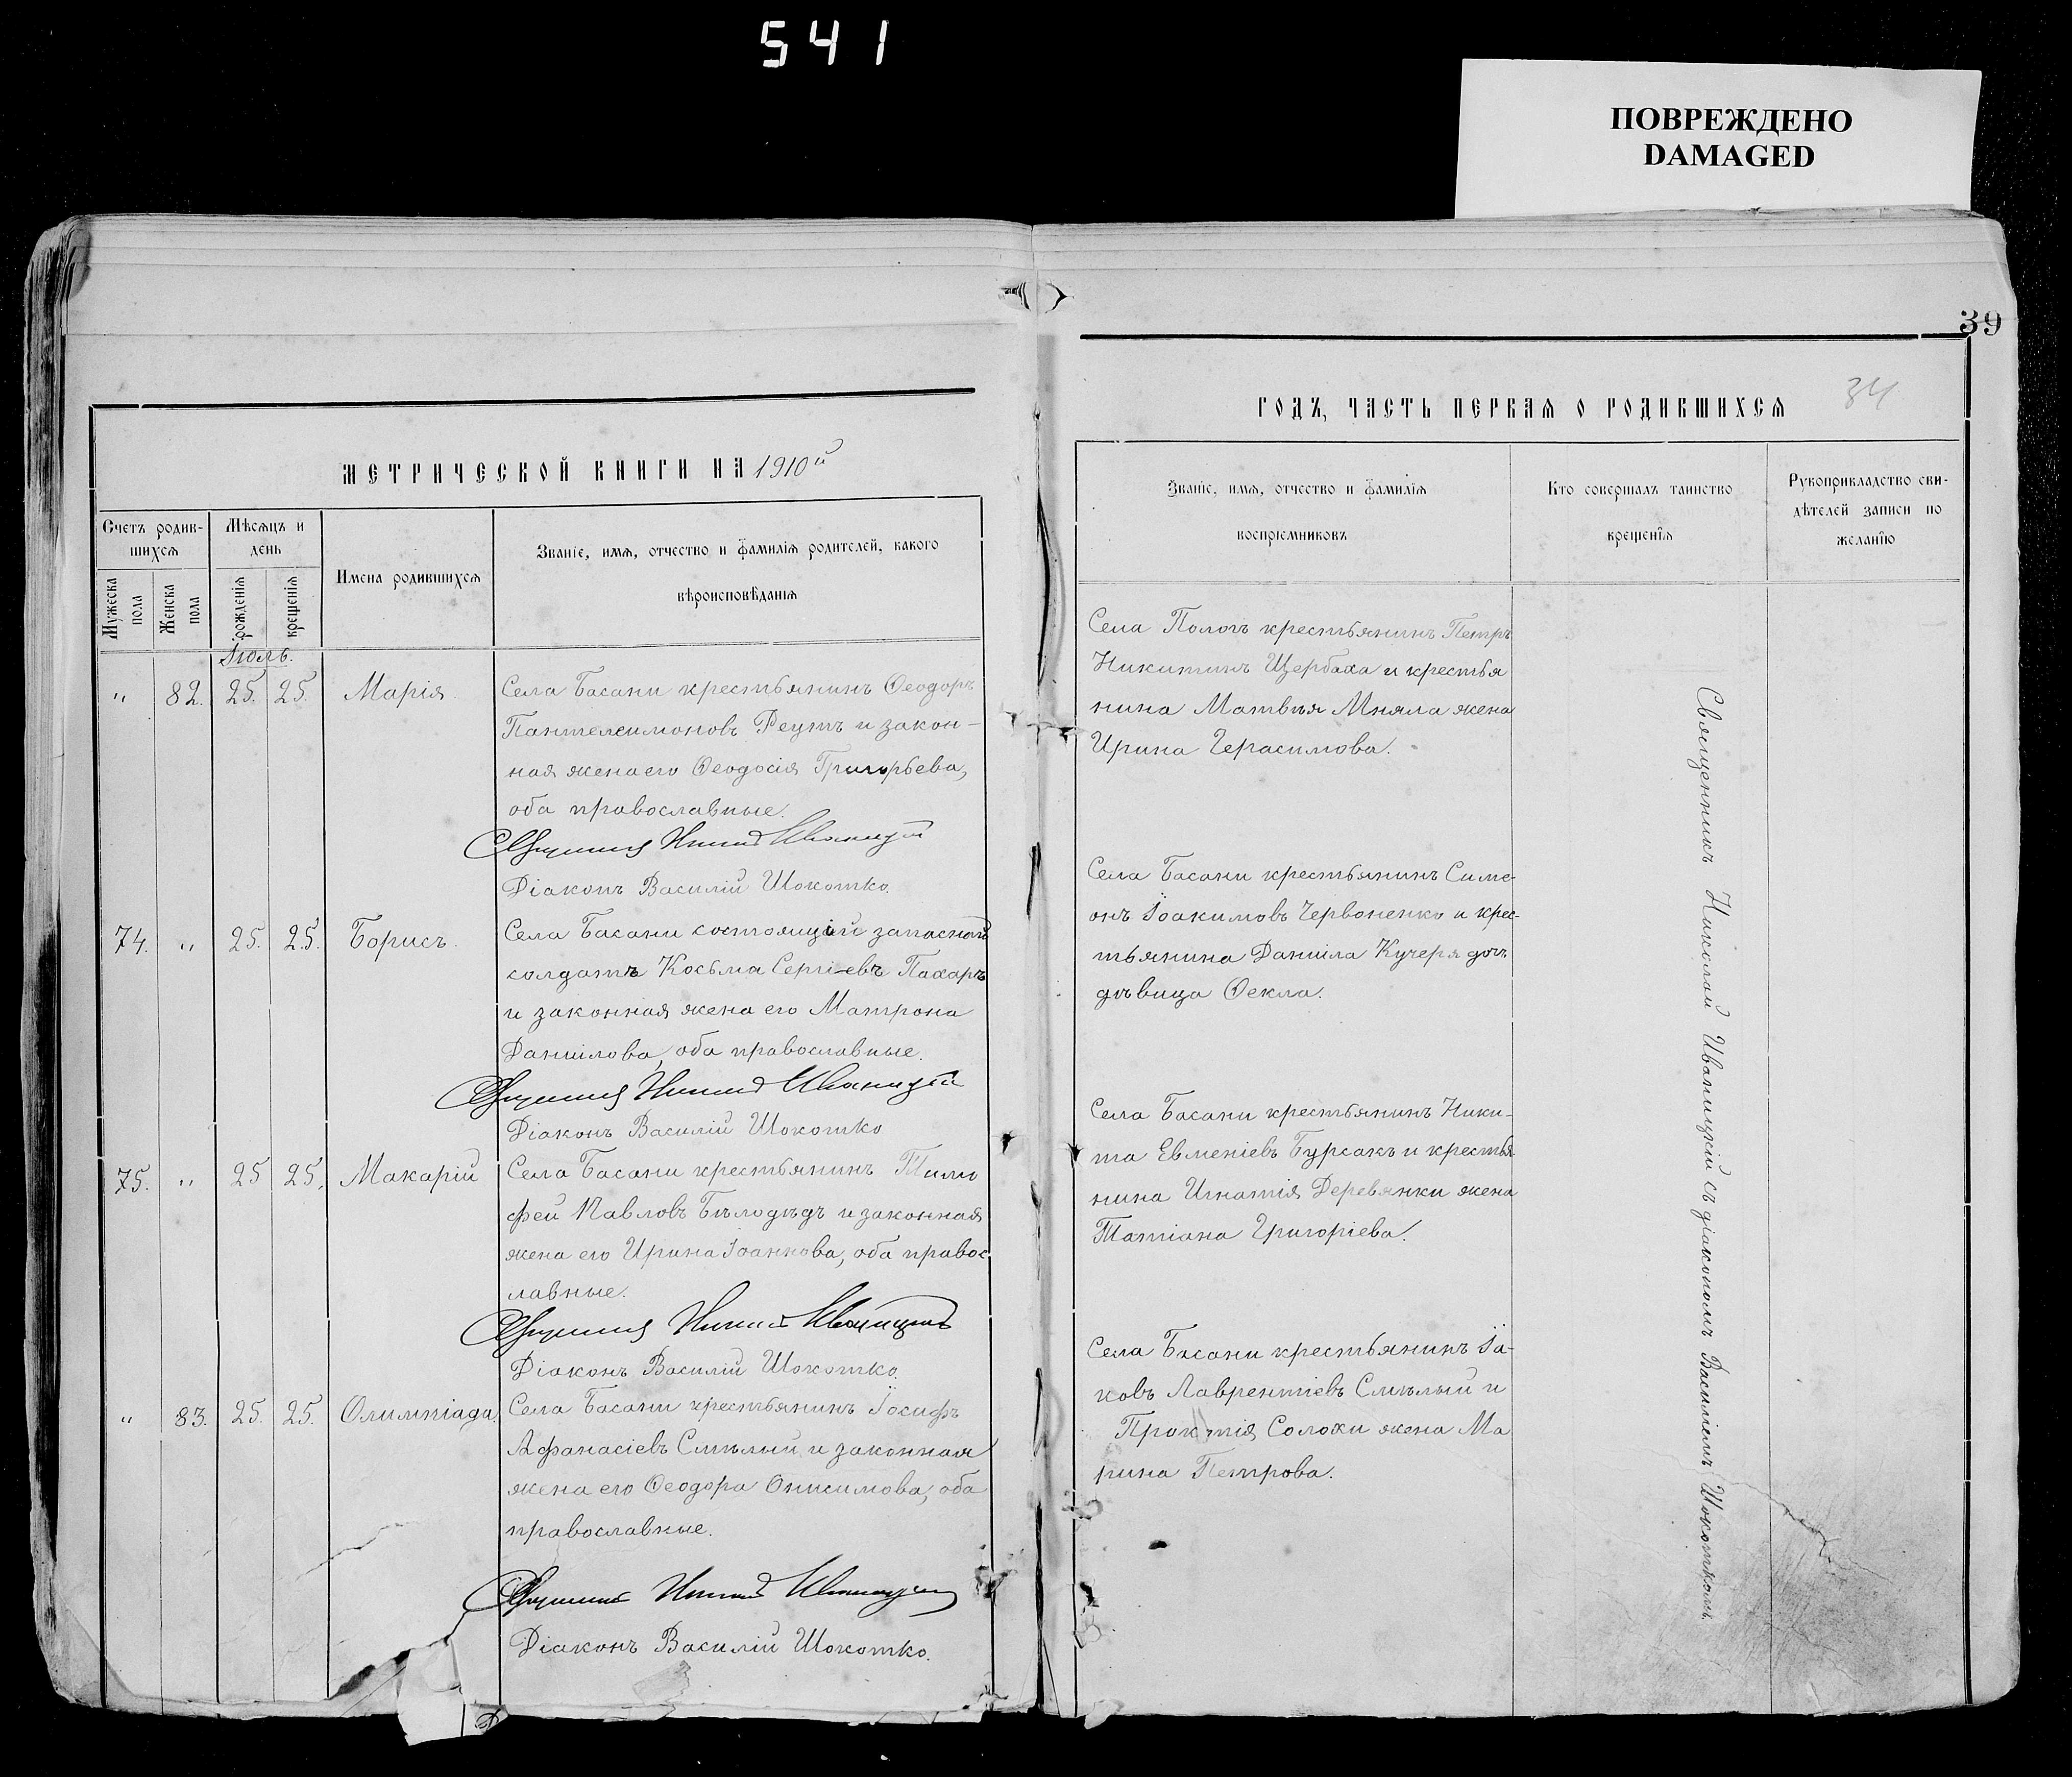 541
ПОВРЕЖДЕНО
DAMAGED
39
34
МЕТРИЧЕСКОЙ КНИГИ НА 1910й
Счетъ родив-
шихся
Мѣсяцъ и
день
Мужеска
пола
Женска
пола
рожденія
крещенія
Имена родившихся
Званіе, имя, отчество и фамилія родителей, какого
вѣроисповѣданія
Іюль.
" 82. 25. 25. Марія.
Села Басани крестьянинъ Ѳеодоръ
Пантелеимоновъ Реутъ и закон-
ная жена его Ѳеодосія Григорьева,
оба православные.
Священникъ Николай Иваницкій
Діаконъ Василій Шокотко.
74. " 25. 25. Борисъ.
Села Басани состоящій запасной
солдатъ Косьма Сергіевъ Пахарь
и законная жена его Матрона
Даніилова, оба православные.
Священникъ Николай Иваницкій
Діаконъ Василій Шокотко
75. " 25 25. Макарій
Села Басани крестьянинъ Тимо
фей Павловъ Бѣлодѣдъ и законная
жена его Ирина Іоаннова, оба правос
лавные.
Священникъ Николай Иваницкій
Діаконъ Василій Шокотко.
" 83. 25. 25. Олимпіада.
Села Басани крестьянинъ Іосифъ
Афанасіевъ Смѣлый и законная
жена его Ѳеодора Онисимова, оба
православные.
Священникъ Николай Иваницкій
Діаконъ Василій Шокотко.
ГОДЪ, ЧАСТЬ ПЕРВАЯ О РОДИВШИХСЯ
Званіе, имя, отчество и фамилія
воспріемниковъ
Кто совершалъ таинство
крещенія
Рукоприкладство сви-
дѣтелей записи по
желанію
Села Пологъ крестьянинъ Петръ
Никитинъ Щербаха и крестья
нина Матвѣя Мняла жена
Ирина Герасимова.
Села Басани крестьянинъ Симе-
онъ Іоакимовъ Червоненко и крес-
тьянина Даніила Кучеря дочь
дѣвица Ѳекла.
Села Басани крестьянинъ Ники-
та Евменіевъ Бурсакъ и крестья
нина Игнатія Деревянки жена
Татіана Григоріева.
Села Басани крестьянинъ Іа-
ковъ Лаврентіевъ Смѣлый и
Солохи жена Ма
рина Петрова.
Священникъ Николай Иваницкій съ діакономъ Василіемъ Шокоткомъ.